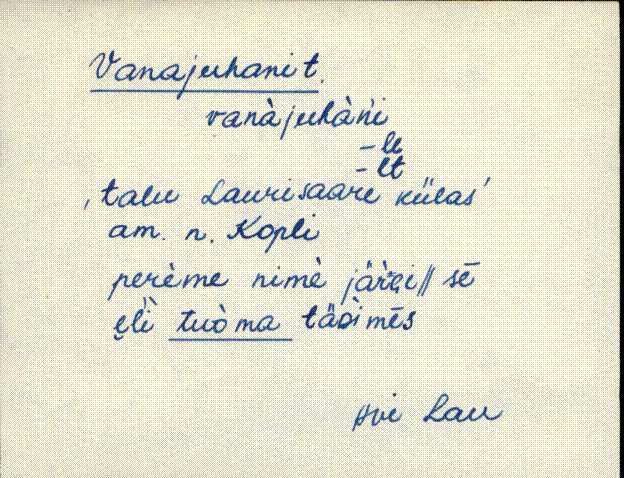 Vanajuhani t.
vanàjuhàńi
-le
-lt
'talu Laurisaare külas'
am. n. Kopli
perème nimè järgi // sē
tuòma mēs
Avi Lau